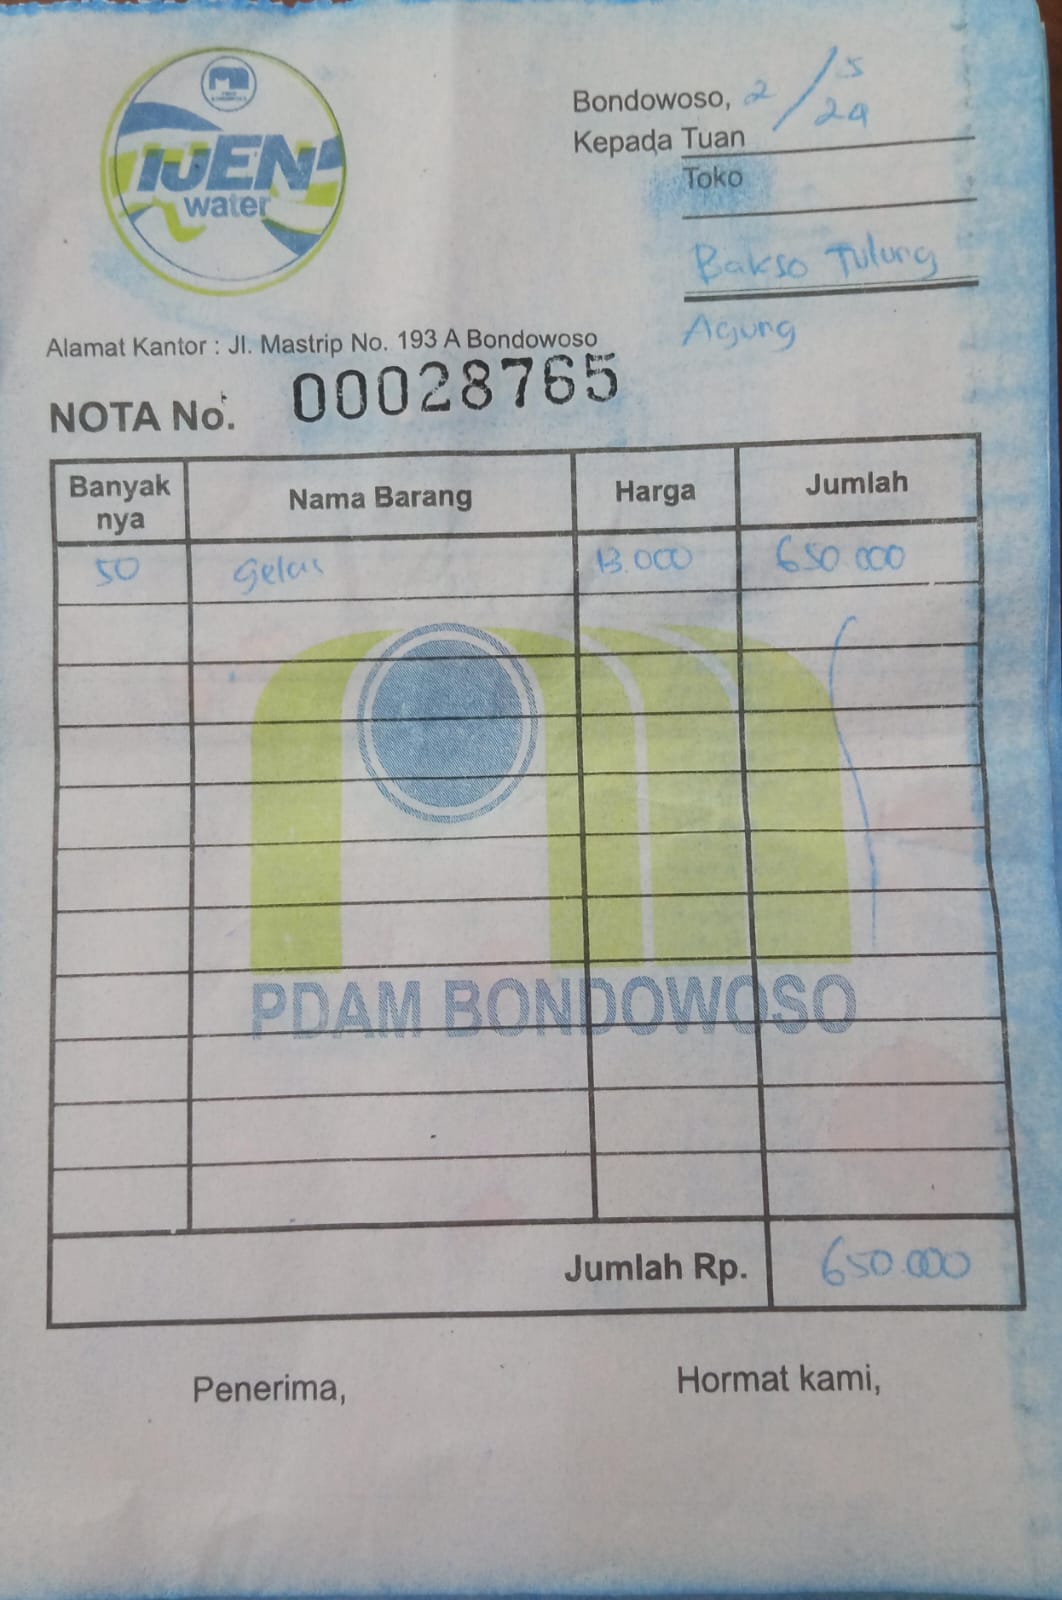 IJEN
water
Bondowoso, 2/5
24
Kepada Tuan
Toko
Bakso Tulung
Agung
Alamat Kantor : Jl. Mastrip No. 193 A Bondowoso
NOTA No. 00028765
Banyak nya Nama Barang Harga Jumlah
50 Gelas 13.000 650.000
PDAM BONDOWOSO
Jumlah Rp. 650.000
Penerima, Hormat kami,